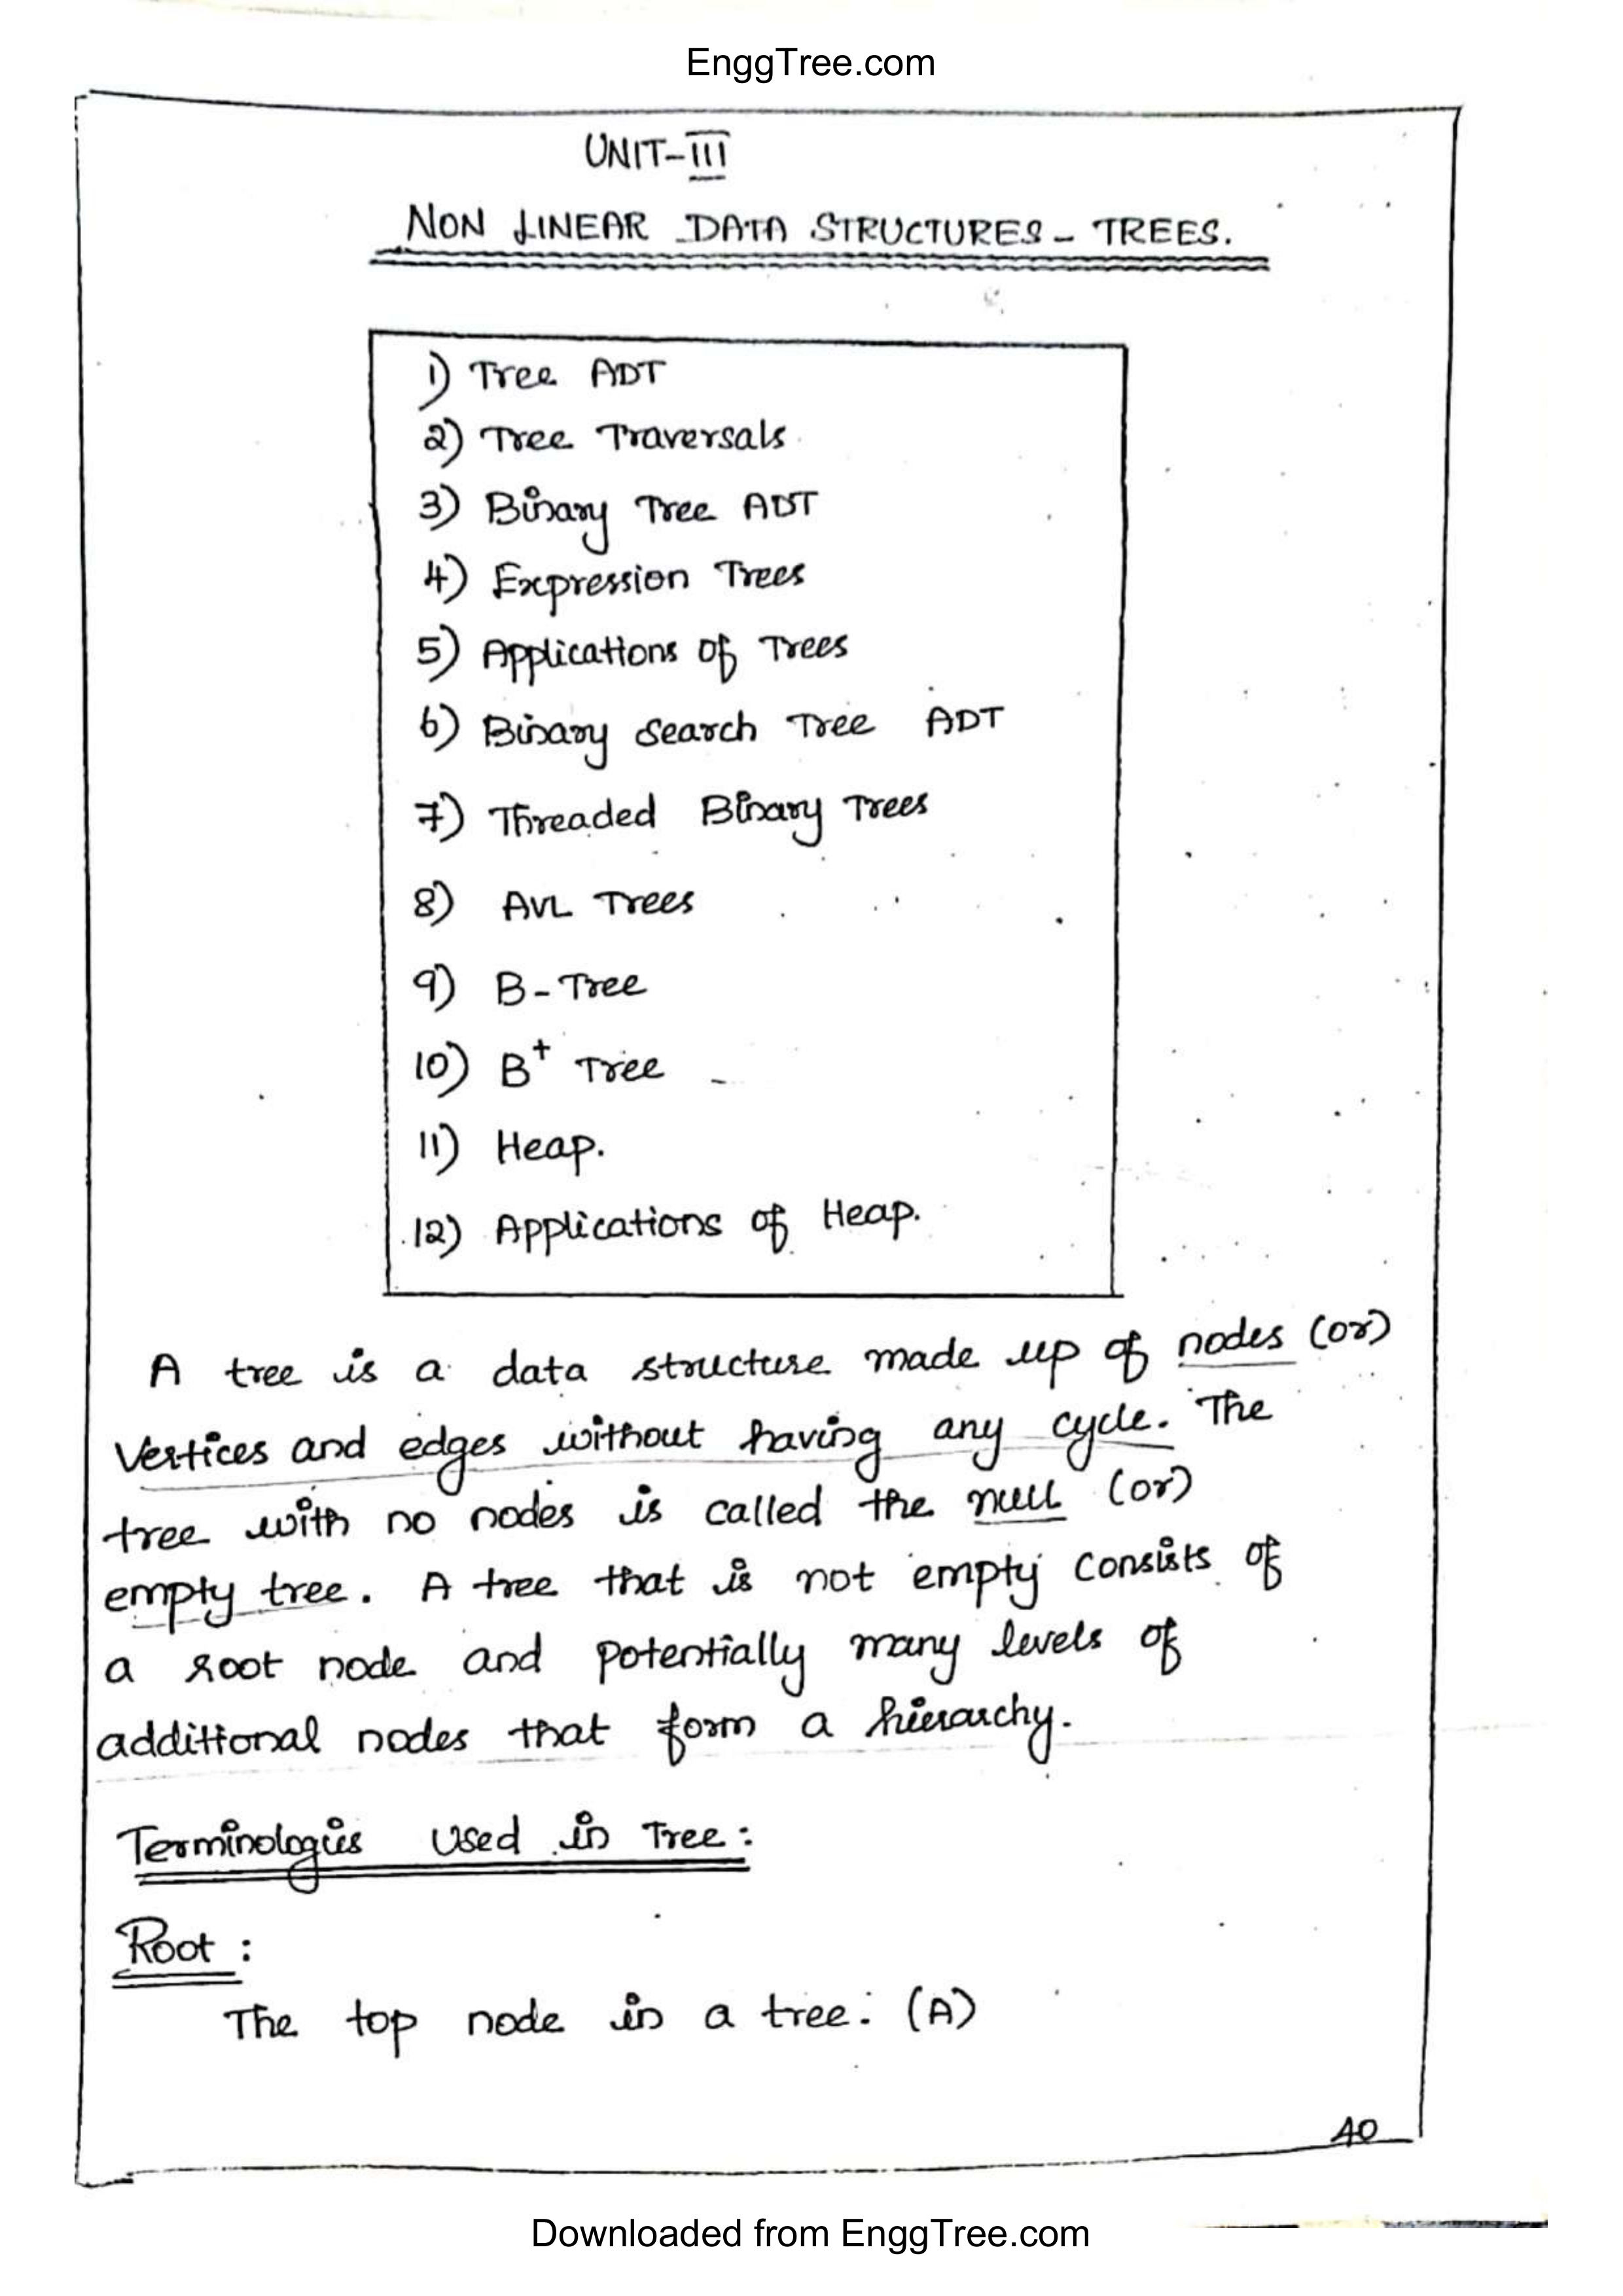 EnggTree.com
UNIT-III
NON LINEAR DATA STRUCTURES - TREES.
1) Tree ADT
2) Tree Traversals
3) Binary Tree ADT
4) Expression Trees
5) Applications of Trees
6) Binary Search Tree ADT
7) Threaded Binary Trees
8) AVL Trees
9) B-Tree
10) B+ Tree
11) Heap.
12) Applications of Heap.
A tree is a data structure made up of nodes (or)
Vertices and edges without having any cycle. The
tree with no nodes is called the null (or)
empty tree. A tree that is not empty consists of
a root node and potentially many levels of
additional nodes that form a hierarchy.
Terminologies Used in Tree:
Root:
The top node in a tree. (A)
40
Downloaded from EnggTree.com